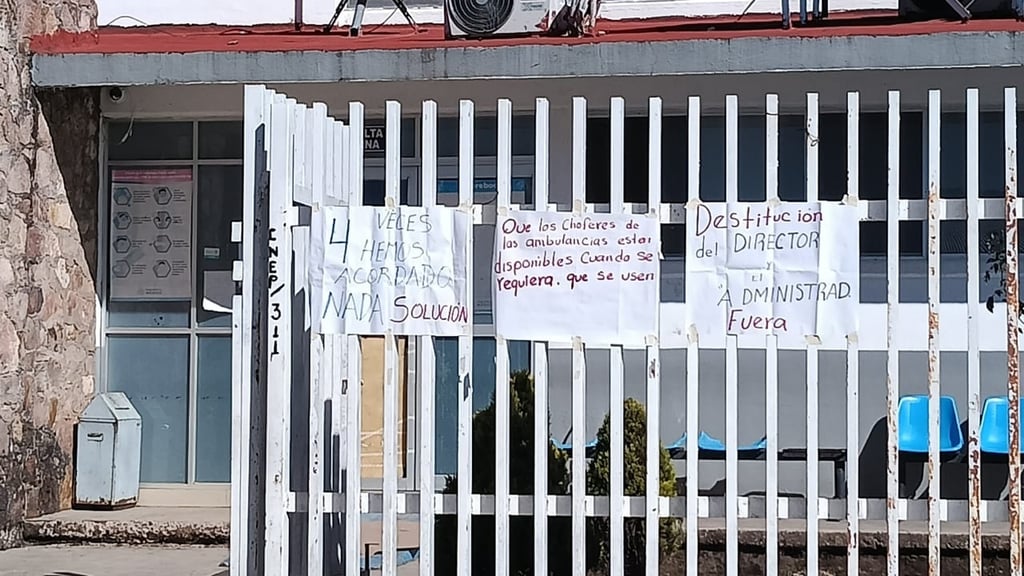 4 VECES
HEMOS
ACORDADO
NADA SOLUCIÓN
Que los choferes de
las ambulancias estar
disponibles Cuando se
requiera. que se usen
Destitución
del DIRECTOR
El
ADMINISTRAD.
Fuera
CNEP/311